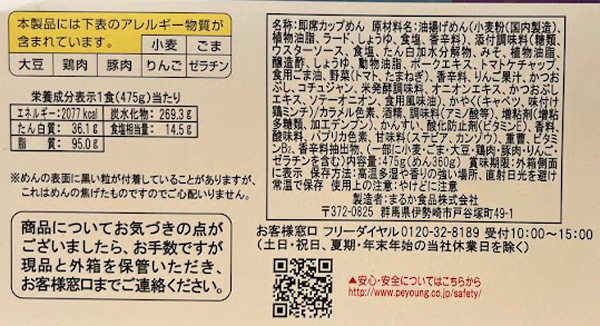 本製品には下表のアレルギー物質が
含まれています。 小麦 ごま
大豆 鶏肉 豚肉 りんご ゼラチン
栄養成分表示1食(475g)当たり
エネルギー:2077kcal 炭水化物:269.3g
たん白質:36.1g 食塩相当量:14.5g
脂質:95.0g
※めんの表面に黒い粒が付着していることがありますが、
これはめんの焦げたものですのでご心配いりません。
商品についてお気づきの点が
ございましたら、お手数ですが
現品と外箱を保管いただき、
お客様窓口までご連絡ください。
名称:即席カップめん 原材料名:油揚げめん(小麦粉(国内製造)、
植物油脂、ラード、しょうゆ、食塩、香辛料)、添付調味料(糖類、
ウスターソース、食塩、たん白加水分解物、みそ、植物油脂、
醸造酢、しょうゆ、動物油脂、ポークエキス、トマトケチャップ、
食用ごま油、野菜(トマト、たまねぎ)、香辛料、りんご果汁、かつお
ぶし、コチュジャン、米発酵調味料、オニオンエキス、かつおぶしエ
キス、ソテーオニオン、食用風味油)、かやく(キャベツ、味付け
鶏ミンチ)/カラメル色素、酒精、調味料(アミノ酸等)、増粘剤(増粘
多糖類、加工デンプン)、かんすい、酸化防止剤(ビタミンE)、香料、
酸味料、パプリカ色素、甘味料(ステビア、カンゾウ)、重曹、ビタミン
B2、香辛料抽出物、(一部に小麦・ごま・大豆・鶏肉・豚肉・りんご・
ゼラチンを含む) 内容量:475g(めん360g) 賞味期限:外箱側面
に表示 保存方法:高温多湿や香りの強い場所、直射日光を避け
常温で保存 使用上の注意:やけどに注意
製造者:まるか食品株式会社
〒372-0825 群馬県伊勢崎市戸谷塚町49-1
お客様窓口 フリーダイヤル 0120-32-8189 受付10:00~15:00
(土日・祝日、夏期・年末年始の当社休業日を除く)
安心・安全についてはこちらから
http://www.peyoung.co.jp/safety/